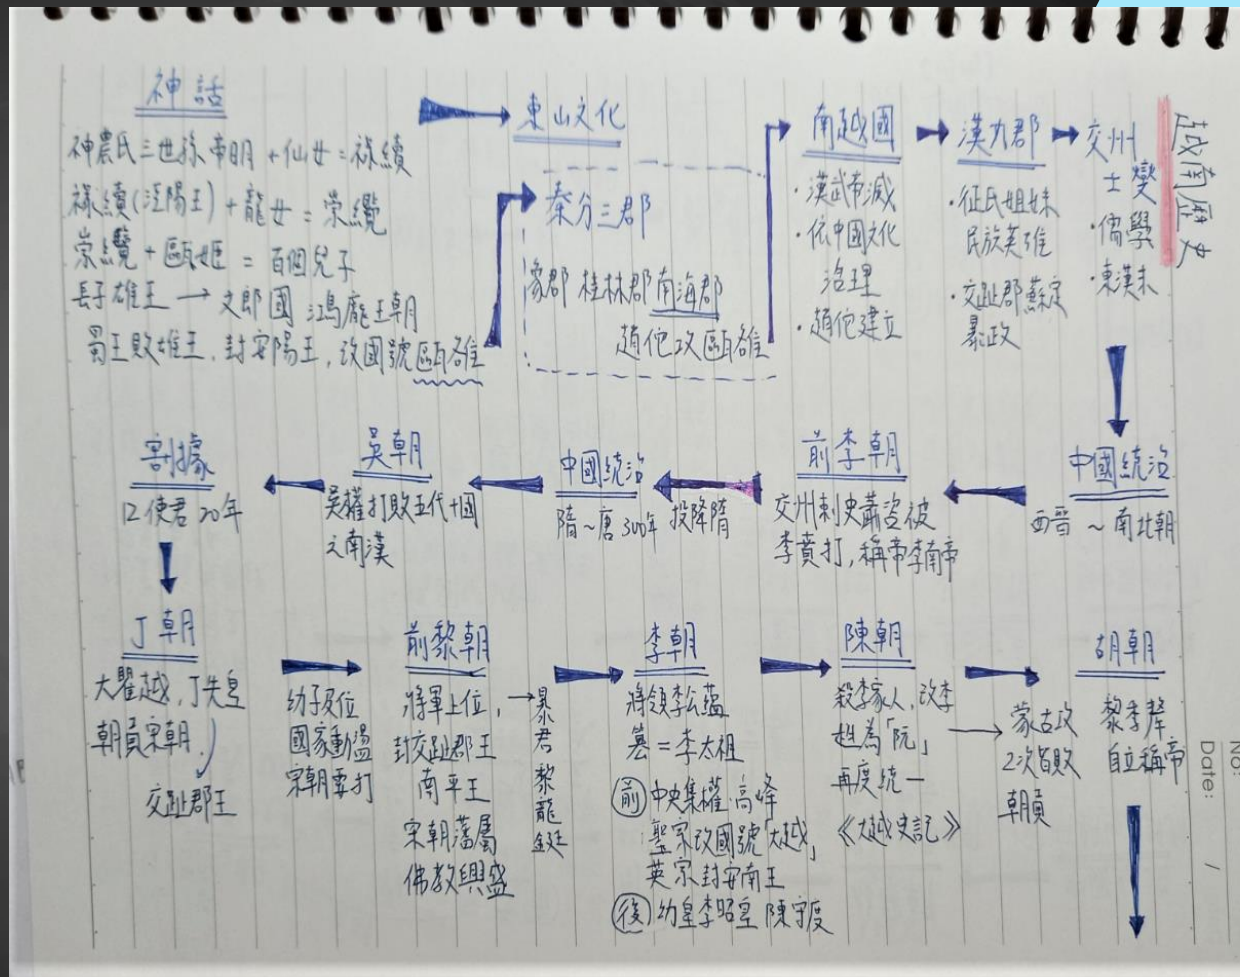 越南歷史
神話
神農氏三世孫帝明+仙女=祿續
祿續(涇陽王)+龍女=崇纜
崇纜+甌姬=百個兒子
長子雄王→文郎國 鴻龐王朝
蜀王敗雄王,封安陽王,改國號甌雒
東山文化
秦分三郡
象郡 桂林郡 南海郡
趙佗攻甌雒
南越國
·漢武帝滅
·依中國文化
治理
·趙佗建立
漢九郡
·征氏姐妹
民族英雄
·交趾郡蘇定
暴政
交州
士燮
·儒學
·東漢末
中國統治
西晉~南北朝
前李朝
交州刺史蕭咨被
李賁打,稱帝李南帝
投降隋
中國統治
隋~唐 300年
吳朝
吳權打敗五代十國
之南漢
割據
12使君 20年
丁朝
大瞿越,丁先皇
朝貢宋朝
交趾郡王
幼子及位
國家動盪
宋朝要打
前黎朝
將軍上位,
封交趾郡王
南平王
宋朝藩屬
佛教興盛
→暴君黎龍鋌
李朝
將領李公蘊
篡=李太祖
前 中央集權 高峰
聖宗改國號「大越」
英宗封安南王
後 幼皇李昭皇 陳守度
陳朝
殺李家人,改李
姓為「阮」
再度統一
《大越史記》
蒙古攻
2次皆敗
朝貢
胡朝
黎季犛
自立稱帝
No:
Date: /